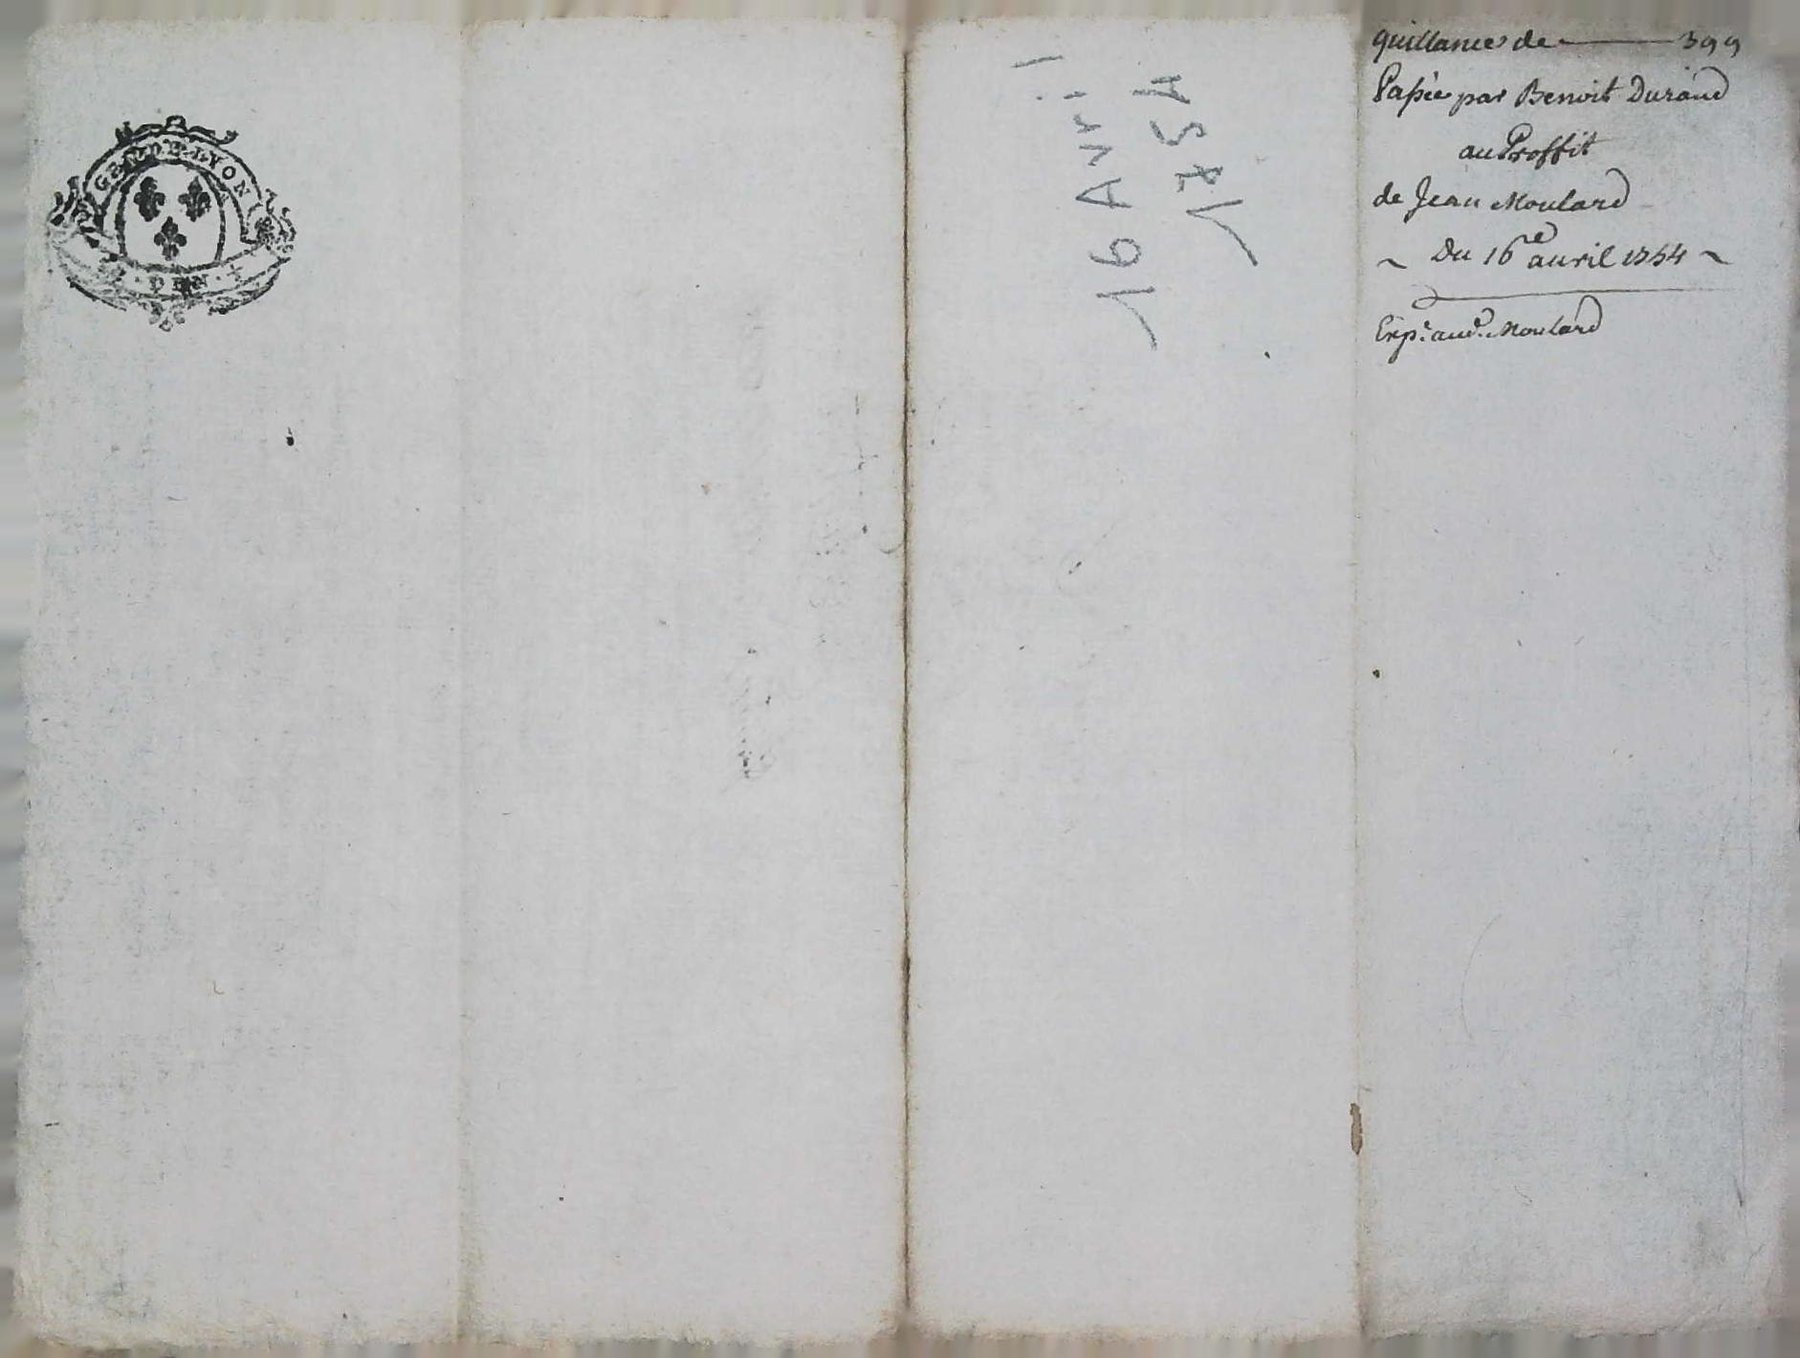 GEN. DE LYON
DEN.
16 Avril
1754
quittance de ——— 399
Passée par Benoit Durand
au Proffit
de Jean Moulard
~ Du 16e avril 1754 ~
Exp. aud. Moulard